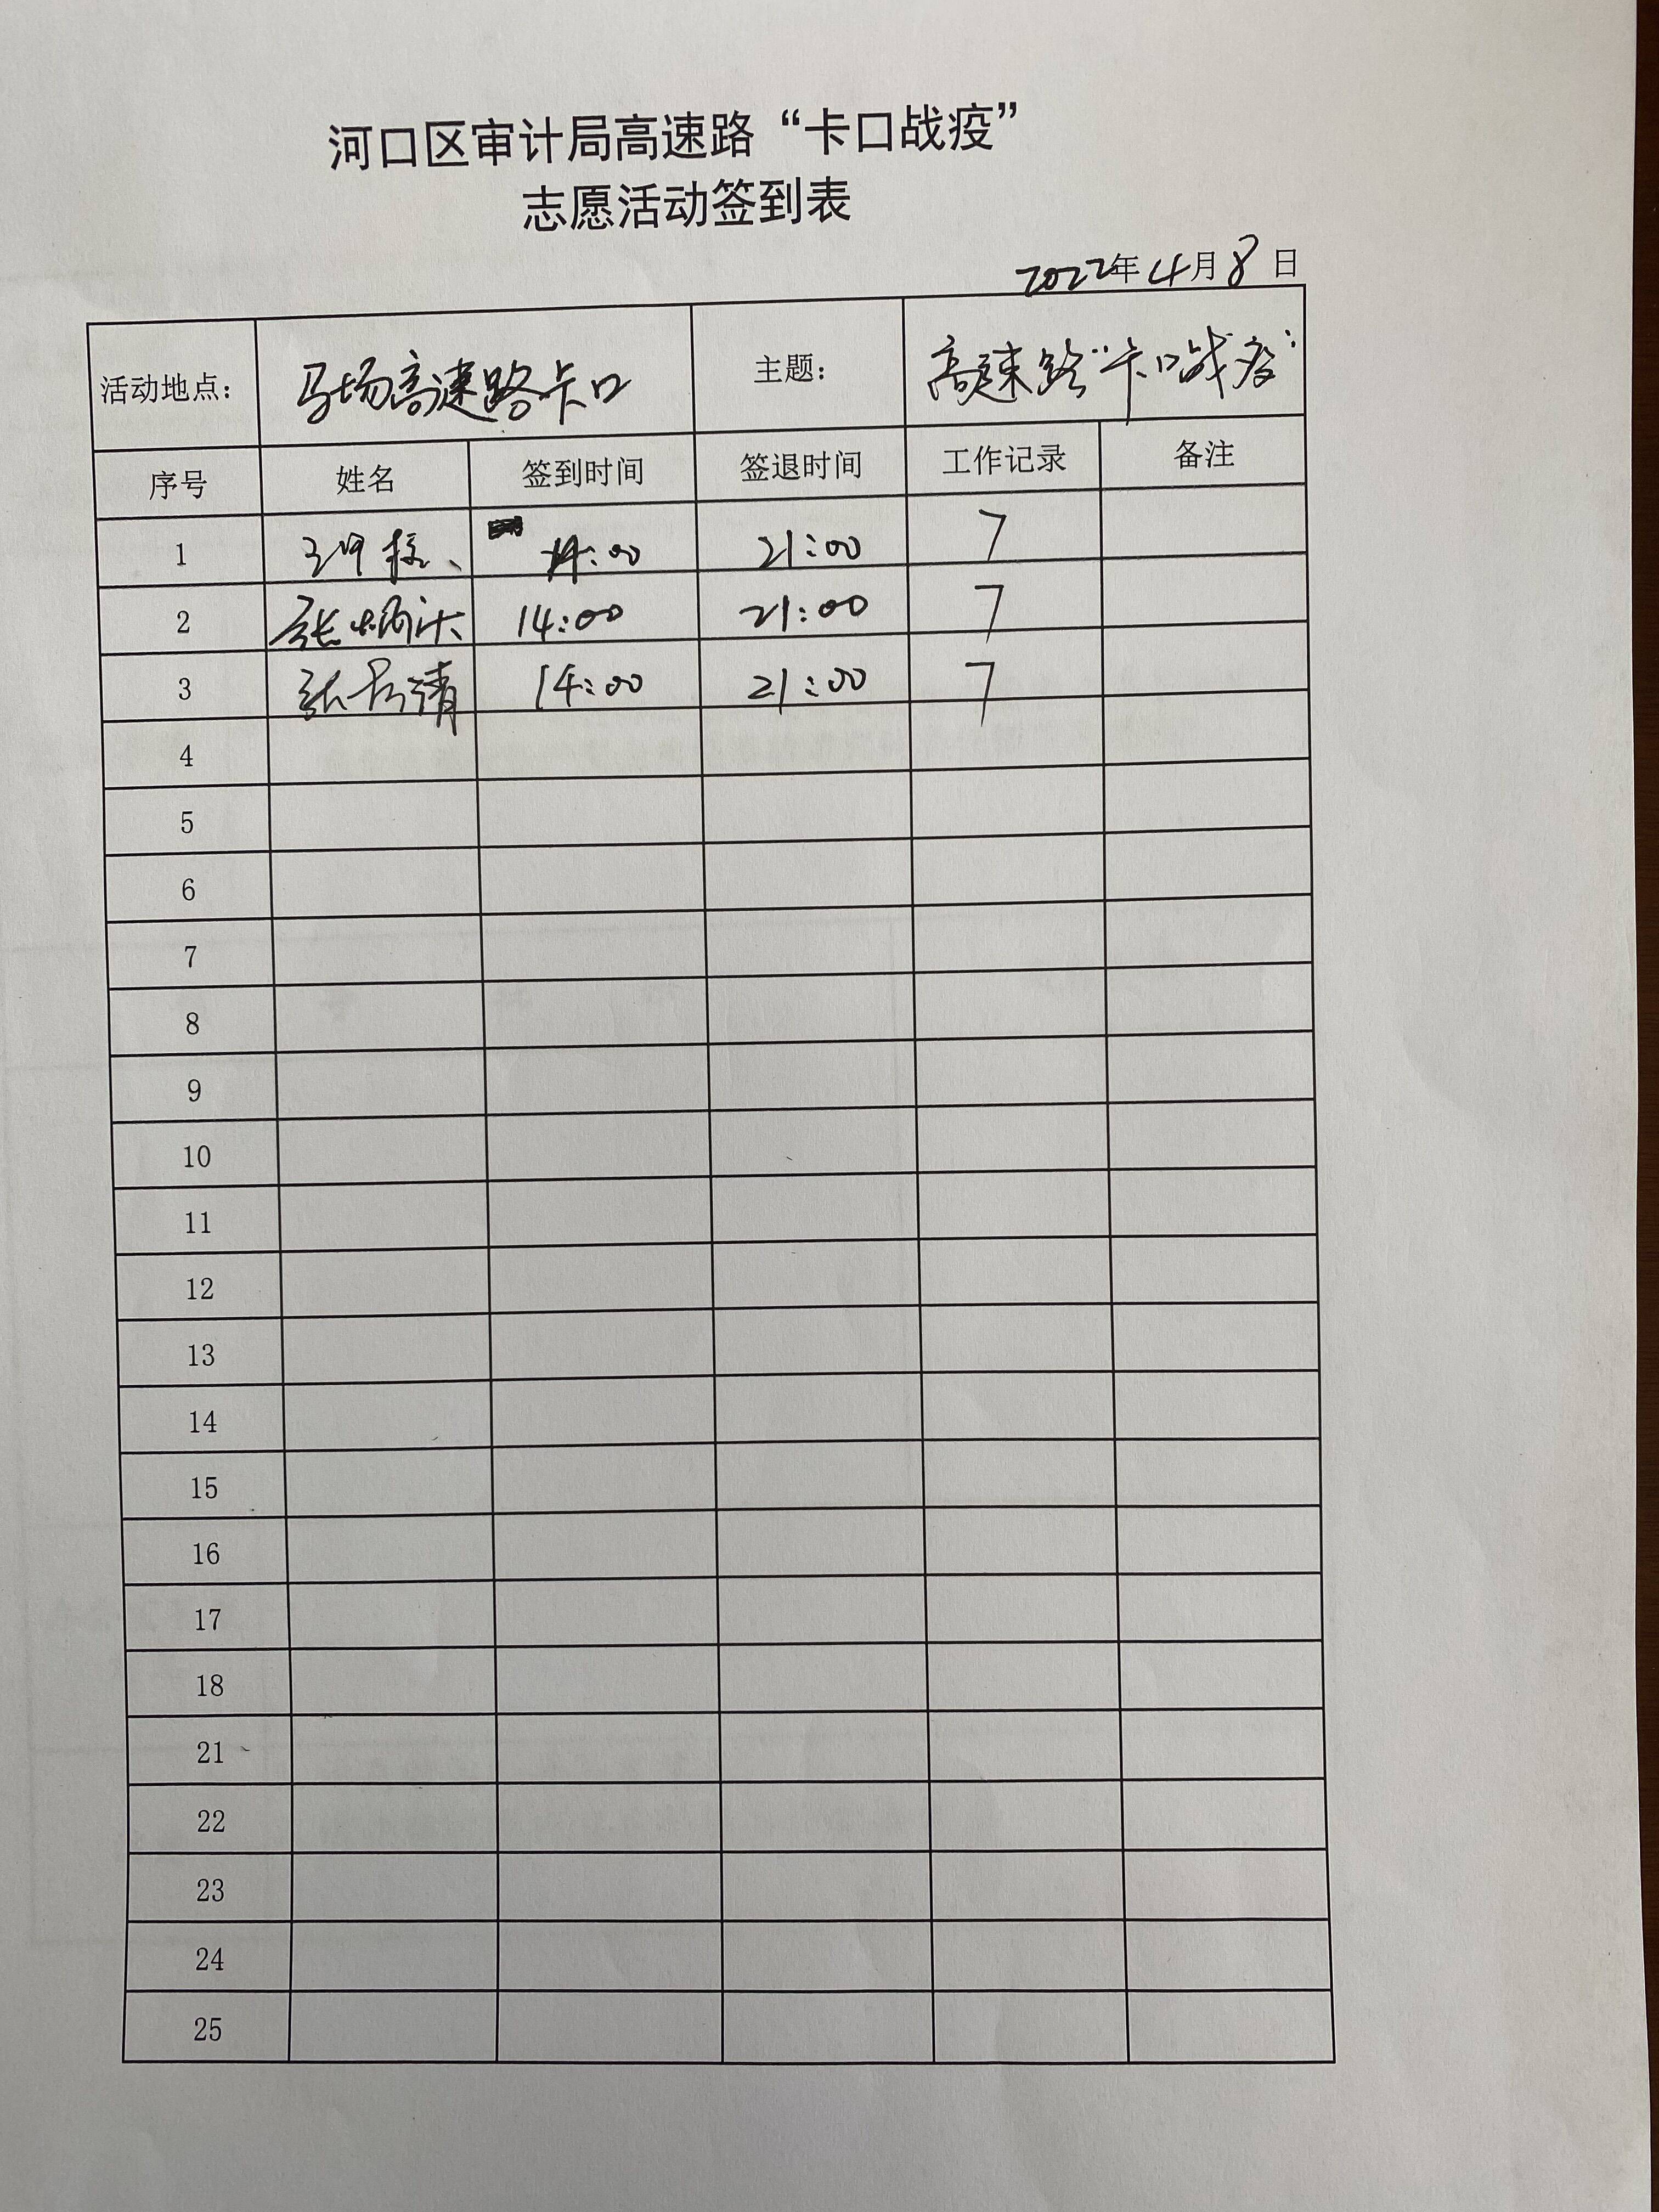 河口区审计局高速路“卡口战疫”
志愿活动签到表
2022年4月8日
活动地点： 马场高速路卡口 主题： 高速路“卡口战疫”
序号 姓名 签到时间 签退时间 工作记录 备注
1 14:00 21:00 7
2 张炳 14:00 21:00 7
3 张 清 14:00 21:00 7
4
5
6
7
8
9
10
11
12
13
14
15
16
17
18
21
22
23
24
25